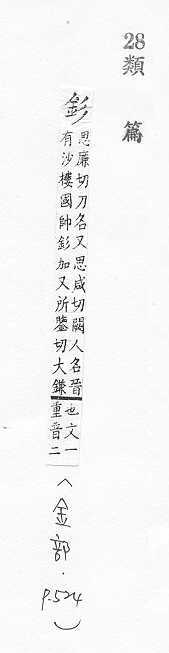 28
類篇
釤
思廉切刀名又思咸切闕人名晉
有沙樓國帥釤加又所鑒切大鎌
也文一
重音二
(金部.
P.524)